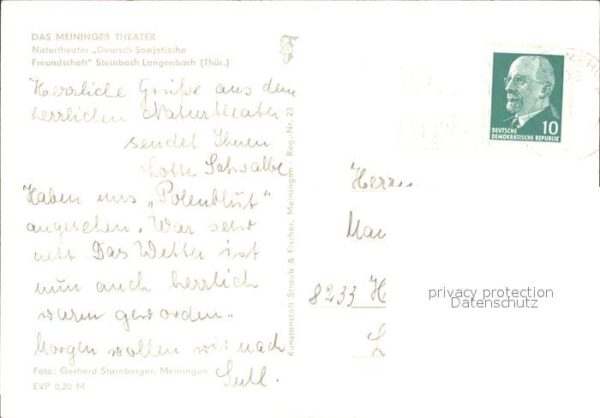 DAS MEININGER THEATER
Naturtheater „Deutsch-Sowjetische
Freundschaft" Steinbach Langenbach (Thür.)
Herrliche Grüße aus dem
herrlichen Naturtheater
sendet Ihnen
Lotte Schwalbe
Haben uns „Polenblut"
angesehen. War sehr
nett. Das Wetter ist
nun auch herrlich
warm geworden.
Morgen wollen wir nach
Suhl.
Foto: Gerhard Starnberger, Meiningen
EVP 0,20 M
Kunstanstalt Straub & Fischer, Meiningen · Reg.-Nr. 23
10
DEUTSCHE
DEMOKRATISCHE REPUBLIK
Herrn
8233 H
privacy protection
Datenschutz